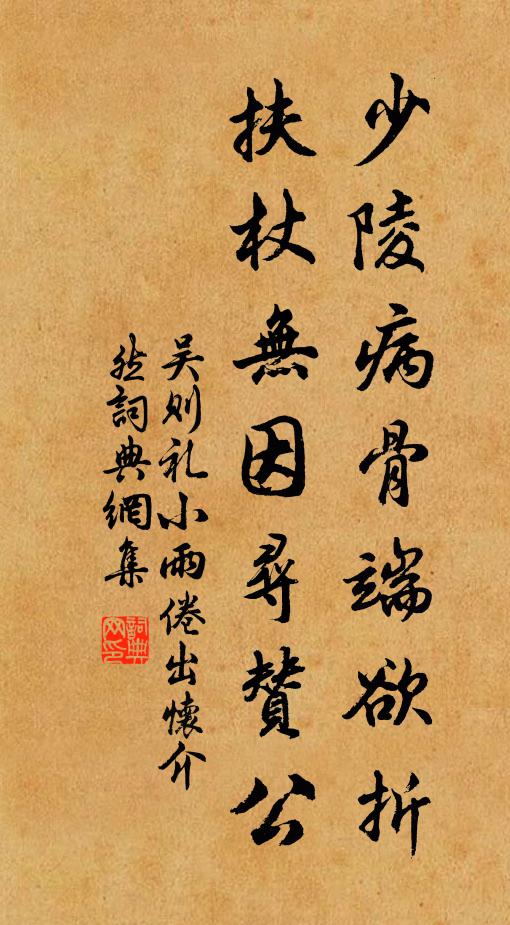 少陵病骨端欲折
扶杖無因尋贊公
吴则礼小雨倦出懷介
然詞典網集
詞典网印